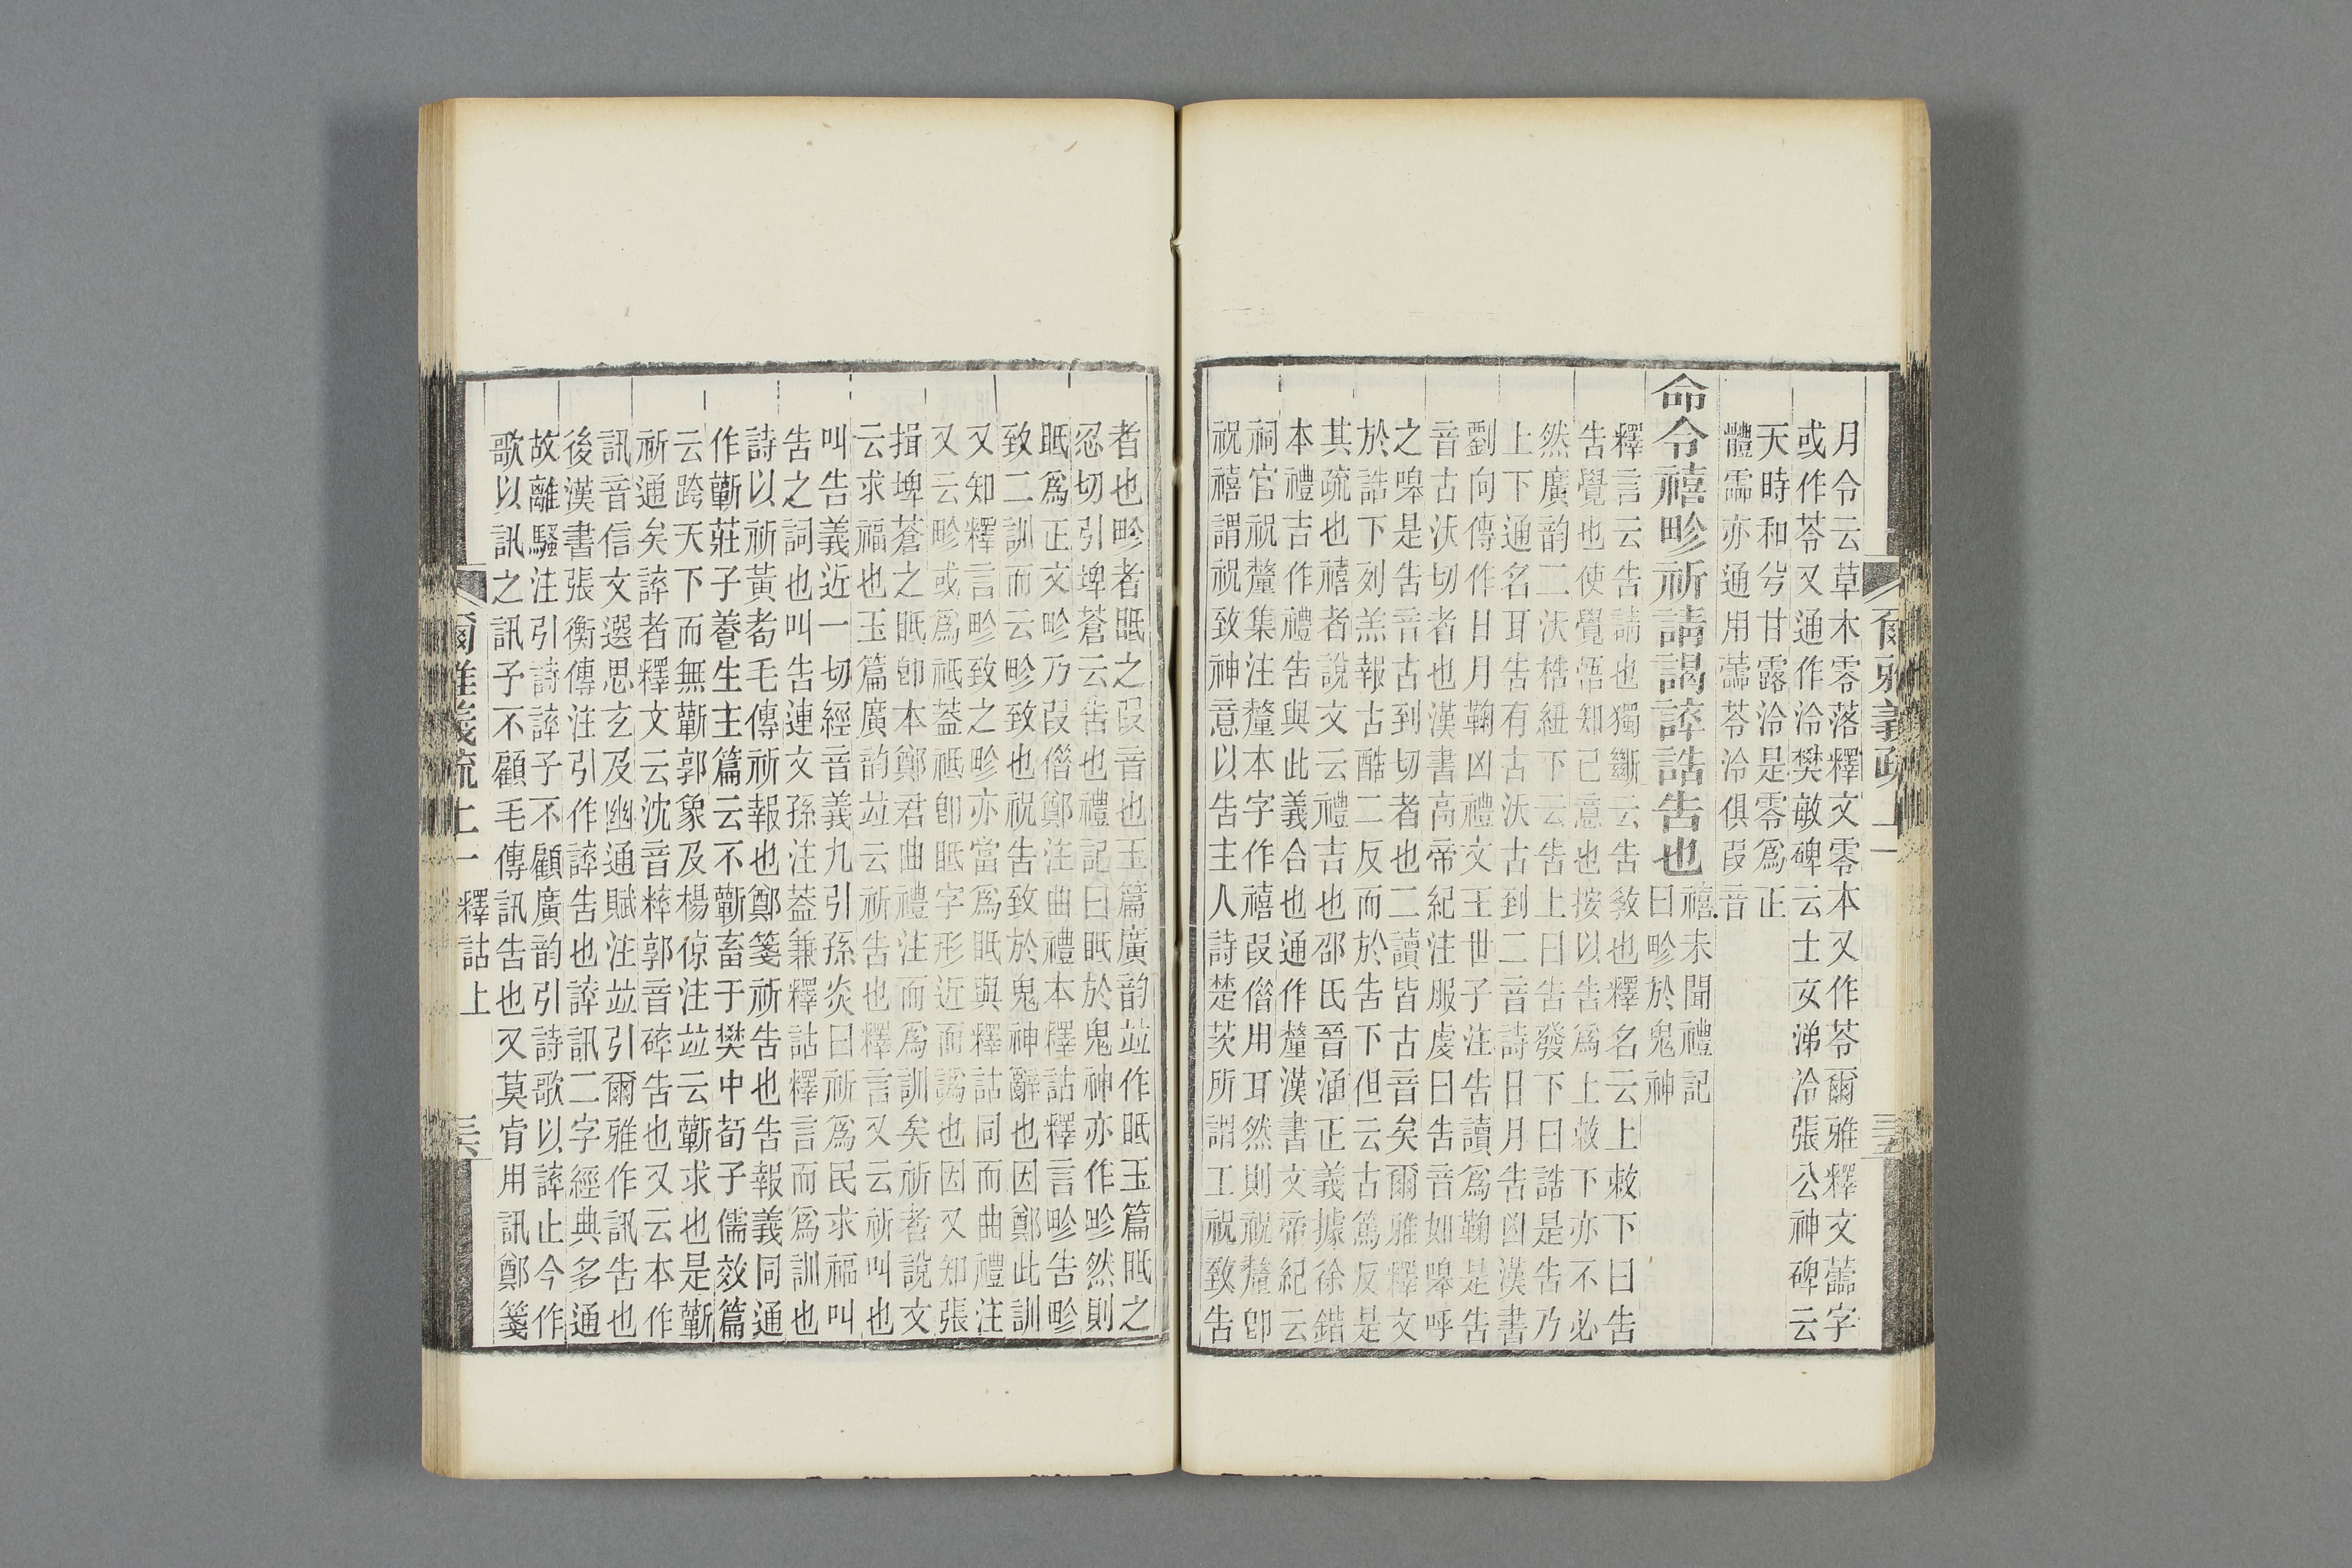 爾雅義疏上一
月令云草木零落釋文零本又作苓爾雅釋文蘦字
或作苓又通作泠樊敏碑云士女涕泠張公神碑云
天時和兮甘露泠是零爲正
體霝亦通用蘦苓泠俱叚音
命令禧畛祈請謁誶誥告也
禧未聞禮記
曰畛於鬼神
釋言云告請也獨斷云告敎也釋名云上敕下曰告
告覺也使覺悟知己意也按以告爲上敕下亦不必
然廣韵二沃梏紐下云告上曰告發下曰誥是告乃
上下通名耳告有古沃古到二音詩日月告凶漢書
劉向傳作日月鞠凶禮文王世子注告讀爲鞠是告
音古沃切者也漢書高帝紀注服虔曰告音如嘷呼
之嘷是告音古到切者也二讀皆古音矣爾雅釋文
於誥下列羔報古酷二反而於告下但云古篤反是
其疏也禧者說文云禮吉也邵氏晉涵正義據徐鍇
本禮吉作禮告與此義合也通作釐漢書文帝紀云
祠官祝釐集注釐本字作禧叚借用耳然則祝釐卽
祝禧謂祝致神意以告主人詩楚茨所謂工祝致告
者也畛者眡之叚音也玉篇廣韵竝作眡玉篇眡之
忍切引埤蒼云告也禮記曰眡於鬼神亦作畛然則
眡爲正文畛乃叚借鄭注曲禮本釋詁釋言畛告畛
致二訓而云畛致也祝告致於鬼神辭也因鄭此訓
又知釋言畛致之畛亦當爲眡與釋詁同而曲禮注
又云畛或爲祗蓋祗卽眡字形近而譌也因又知張
揖埤蒼之眡卽本鄭君曲禮注而爲訓矣祈者說文
云求福也玉篇廣韵竝云祈告也釋言又云祈叫也
叫告義近一切經音義九引孫炎曰祈爲民求福叫
告之詞也叫告連文孫注蓋兼釋詁釋言而爲訓也
詩以祈黃耇毛傳祈報也鄭箋祈告也告報義同通
作蘄莊子養生主篇云不蘄畜于樊中荀子儒效篇
云跨天下而無蘄郭象及楊倞注竝云蘄求也是蘄
祈通矣誶者釋文云沈音粹郭音碎告也又云本作
訊音信文選思玄及幽通賦注竝引爾雅作訊告也
後漢書張衡傳注引作誶告也誶訊二字經典多通
故離騷注引詩誶予不顧廣韵引詩歌以誶止今作
歌以訊之訊予不顧毛傳訊告也又莫肯用訊鄭箋
爾雅義疏上一 釋詁上